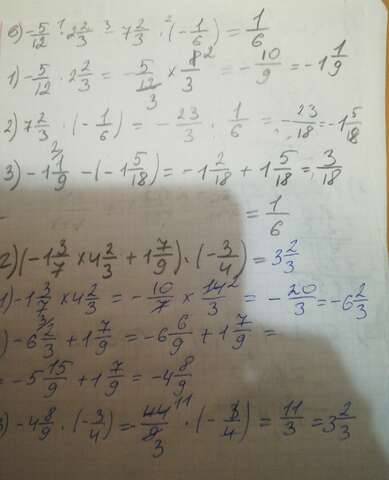 6) -5/12 · 2 2/3 - 7 2/3 · (-1/6) = 1/6
1) -5/12 · 2 2/3 = -5/12 × 8/3 = -10/9 = -1 1/9
2) 7 2/3 · (-1/6) = -23/3 · 1/6 = -23/18 = -1 5/18
3) -1 1/9 - (-1 5/18) = -1 2/18 + 1 5/18 = 3/18
= 1/6
2) (-1 3/7 × 4 2/3 + 1 7/9) · (-3/4) = 3 2/3
1) -1 3/7 × 4 2/3 = -10/7 × 14/3 = -20/3 = -6 2/3
) -6 2/3 + 1 7/9 = -6 6/9 + 1 7/9 =
= -5 15/9 + 1 7/9 = -4 8/9
3) -4 8/9 · (-3/4) = -44/9 · (-3/4) = 11/3 = 3 2/3